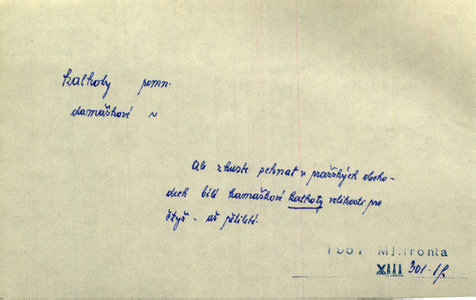 kalhoty pomn.
damaškové ~
Ale zkuste sehnat v pražských obcho-
dech bílé kamaškové kalhoty velikosti pro
čtyř - až pětileté.
1957 Ml.fronta
XIII 301-1/2